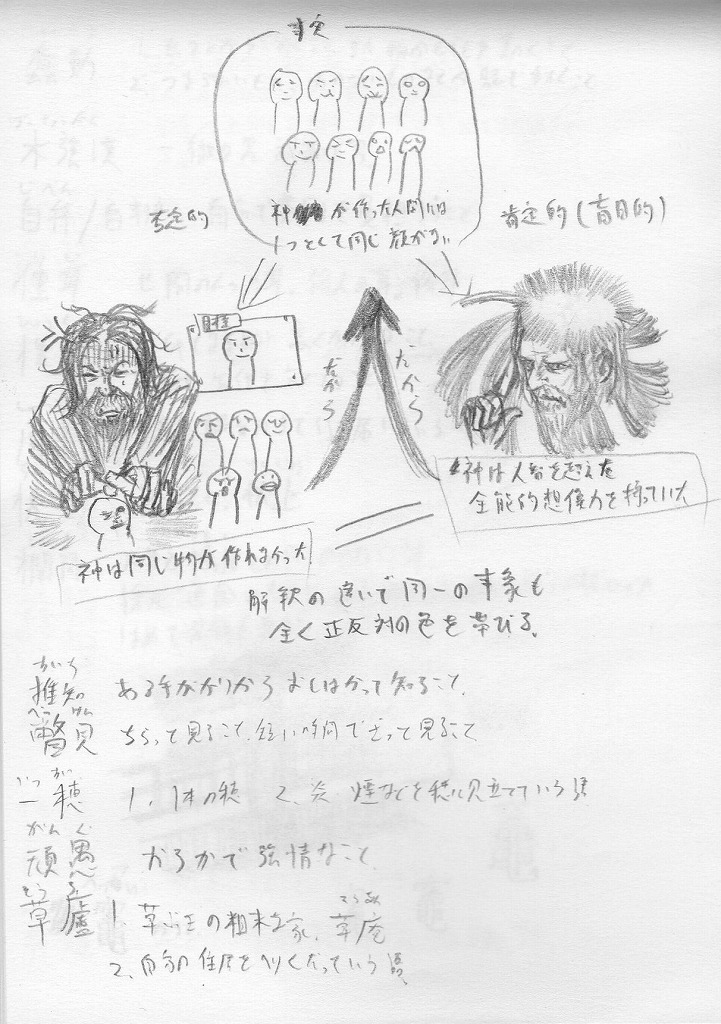 事実
神が作った人間には
1つとして同じ顔がない
否定的
肯定的(盲目的)
目標
だから
だから
神は同じ物が作れなかった
神は人智を超えた
全能的想像力を持っていた
解釈の違いで同一の事象も
全く正反対の色を帯びる。
すいち
推知 ある手がかりからおしはかって知ること。
べっけん
瞥見 ちらっと見ること、短い時間でざっと見ること
いっすい
一穂 1. 1本の穂 2. 炎、煙などを穂に見立てていう語
がんぐ
頑愚 おろかで強情なこと。
そうろ
草廬 1. 草ぶきの粗末な家、草庵
そうあん
2. 自分の住居をへりくだっていう語。